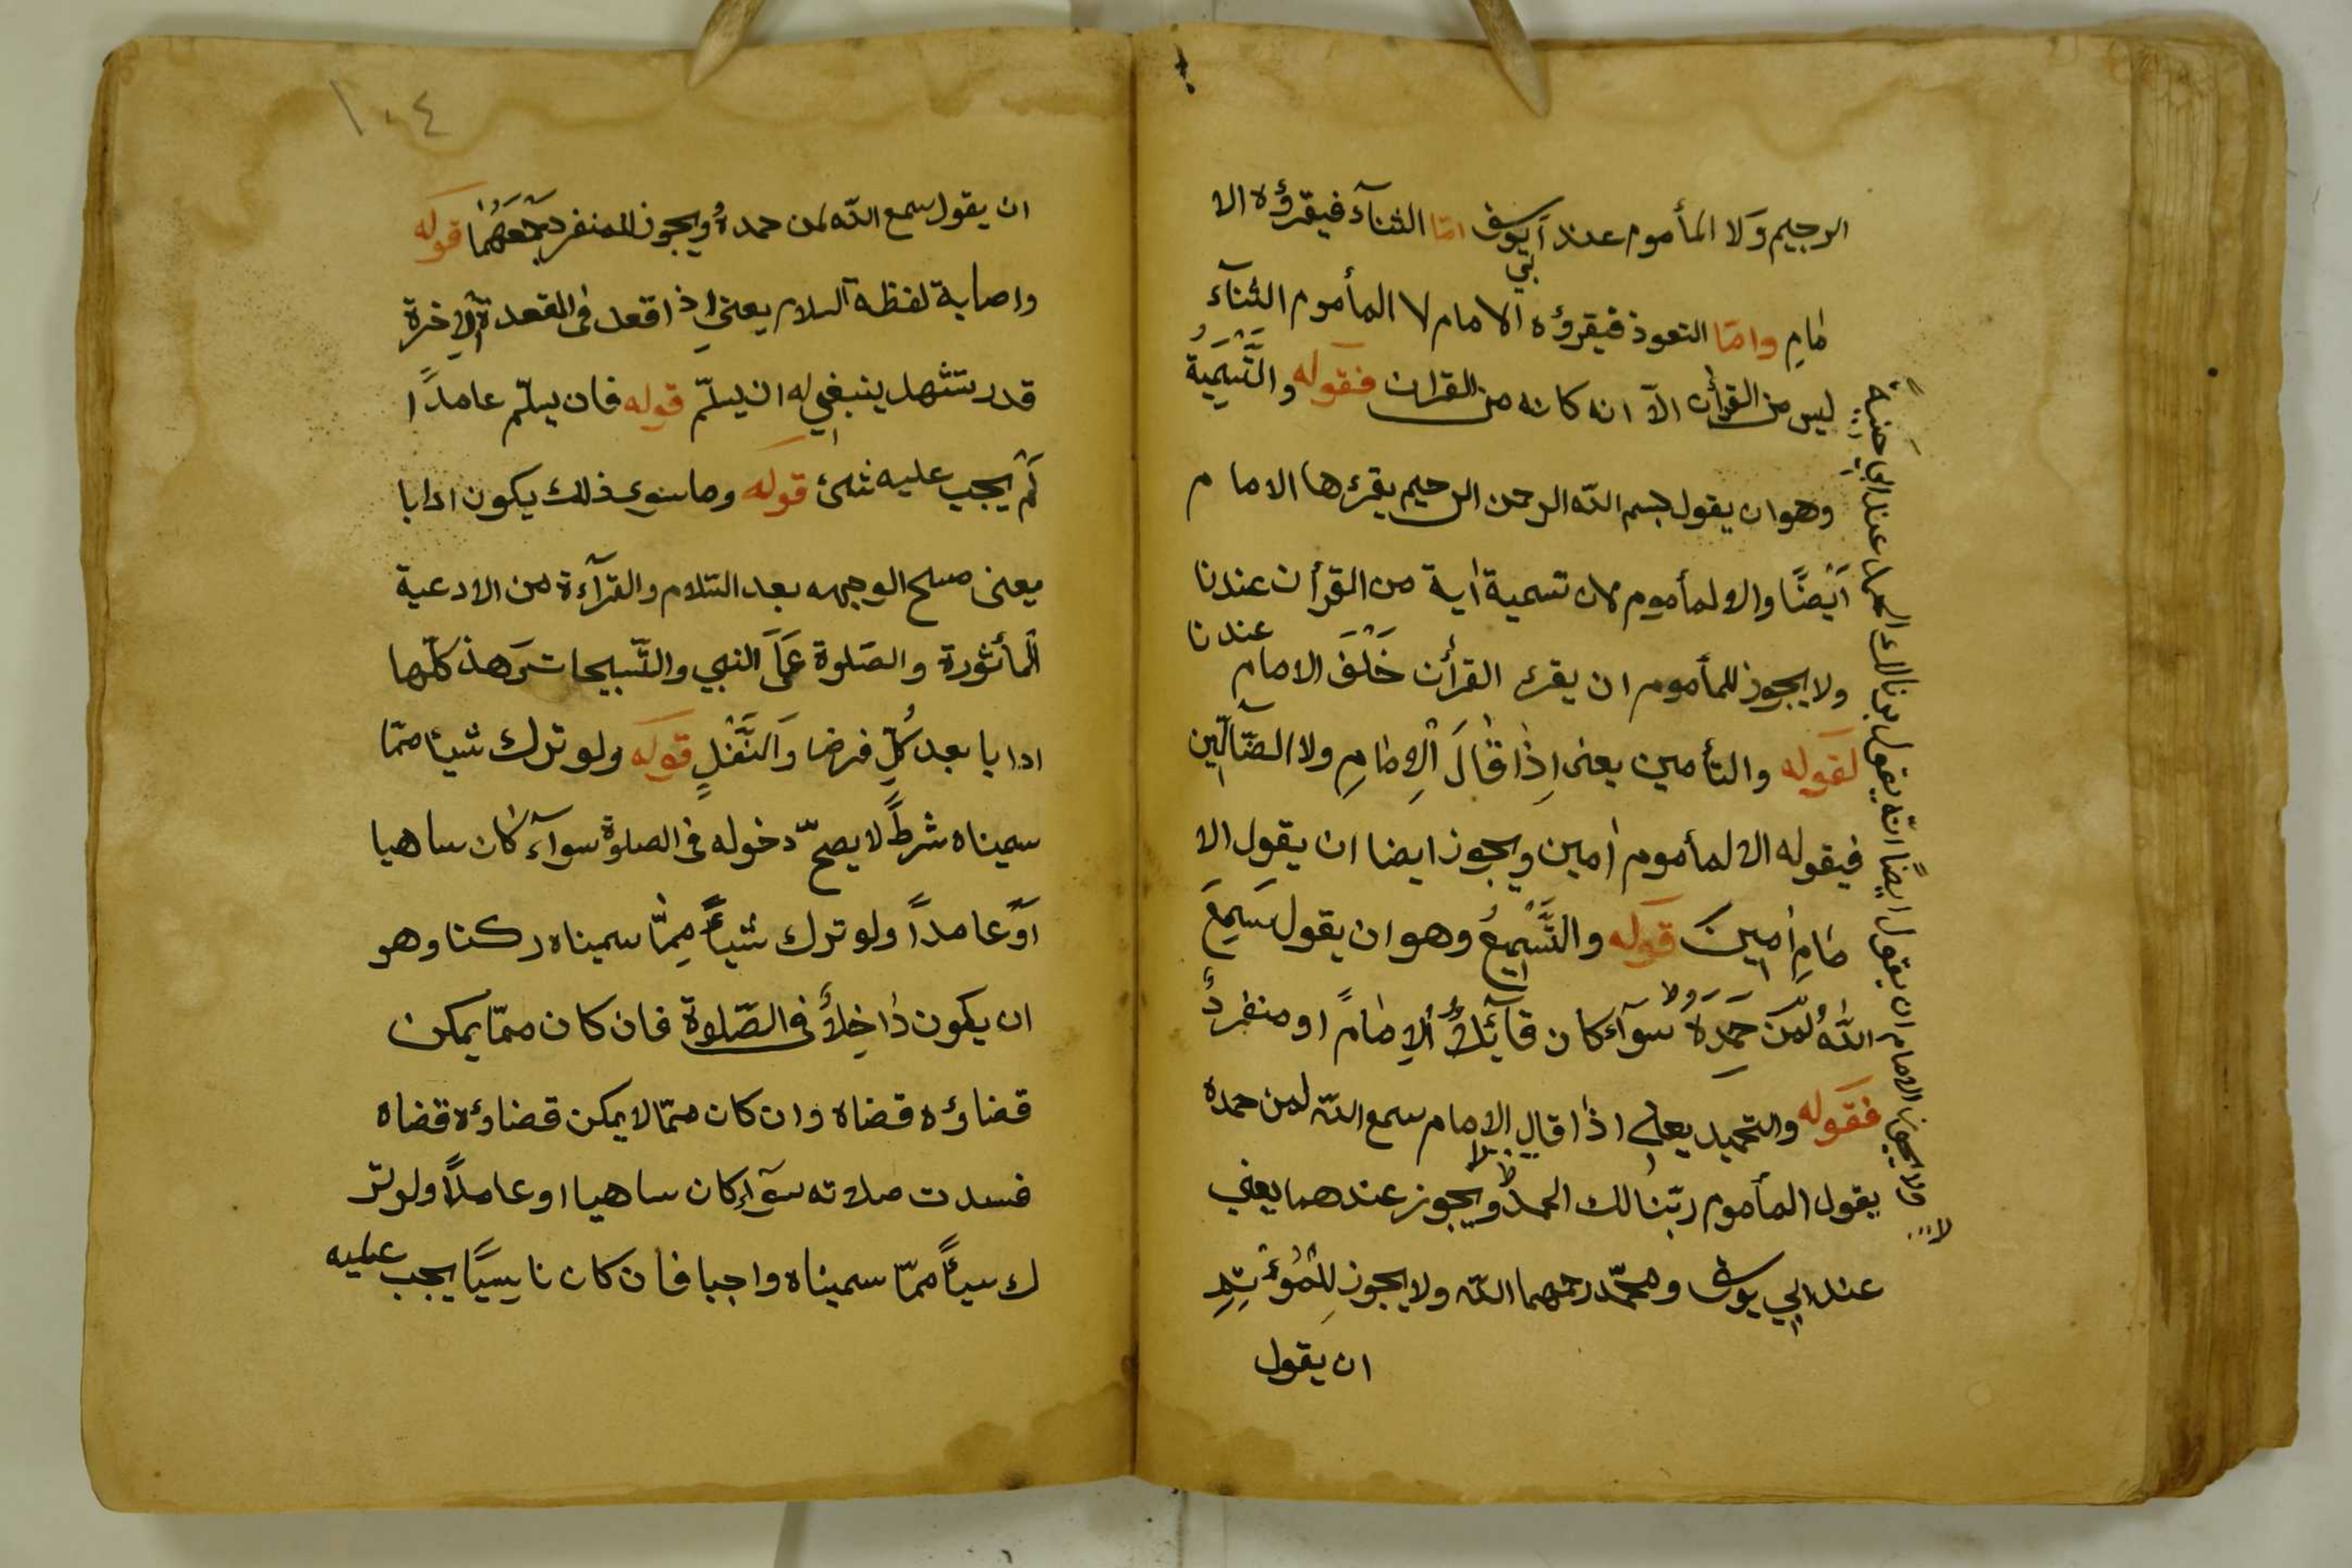 الرجيم وَلا المأموم عند اَبي يوسف امّا الثنآء فيقرؤه الا
مامِ وامّا التعوذ فيقرؤه الامام لا المأموم الثنآء
ليس من القرأن الاّ انه كانه من القران فقوله والتَّسْمِيَةُ
وهو ان يقول بسم الله الرحمن الرحيم يقرءها الامام
اَيْضًا والا لمأموم لان تسمية اٰية من القرأن عندنا
ولا يجوز للمأموم ان يقرء القرأن خَلْفَ الامام عندنا
لقوله والتأمين يعنى اِذٰا قٰالَ اْلاِمٰامِ ولا الضّآلّين
فيقوله الا لمأموم اٰمين ويجوز ايضا ان يقول الا
مٰامِ اٰمِينَ قوله والتَّسْمِيعُ وهو ان يقول سَمِعَ
اللهُ لِمَنْ حَمِدَهُ سوآء كان قآئِلاً اْلاِمٰامً او منفردً
فقوله والتحميد يعلى اذٰا قال الامام سمع الله لمن حمده
يقول المأموم ربّنٰا لك الحمد ويجوز عندهما يعني
عند ابي يوسف ومحمّد رحمهما الله ولا يجوز لِلْمُوْتَدِ
ان يقول
ولا يجوز الامام ان يقول ايضًا انّه يقول ربنا لك الحمد عند ابي حنيفة
١٠٤
ان يقول سمع الله لمن حمدهُ ويجوز للمنفرد جَمْعَهُمٰا قوله
واصابة لفظة السلام يعني اذا قعد فى القعدة الاٰخرة
قدر تشهد ينبغي له ان يسلّم قوله فان يسلّم عامدًا
لَمْ يجب عليه شئ قوله وما سوى ذلك يكون ادابا
يعنى مسح الوجهه بعد السّلام والقرآءة من الادعية
اْلمأثورة والصّلوة عَلَى النبي والتّسبيحات وَهذ كلّها
ادابا بعد كُلِّ فرضا وَالنَّفْلٍ قوله ولو ترك شيئا ممّا
سميناه شرطً لا يصحّ دخوله فى الصلوة سوآء كٰان ساهيا
اَوْ عامداً ولو ترك شيئاً مِمّٰا سميناه ركنا وهو
ان يكون دٰاخِلاً فى الصّلوة فان كان ممّا يمكن
قضاؤه قضاه وان كان ممّا لا يمكن قضاؤه قضاه
فسدت صلاته سوآء كان ساهيا او عامداً ولو تر
ك سيئاً ممّا سميناه واجبا فان كان نٰاسِيًا يجب عليه